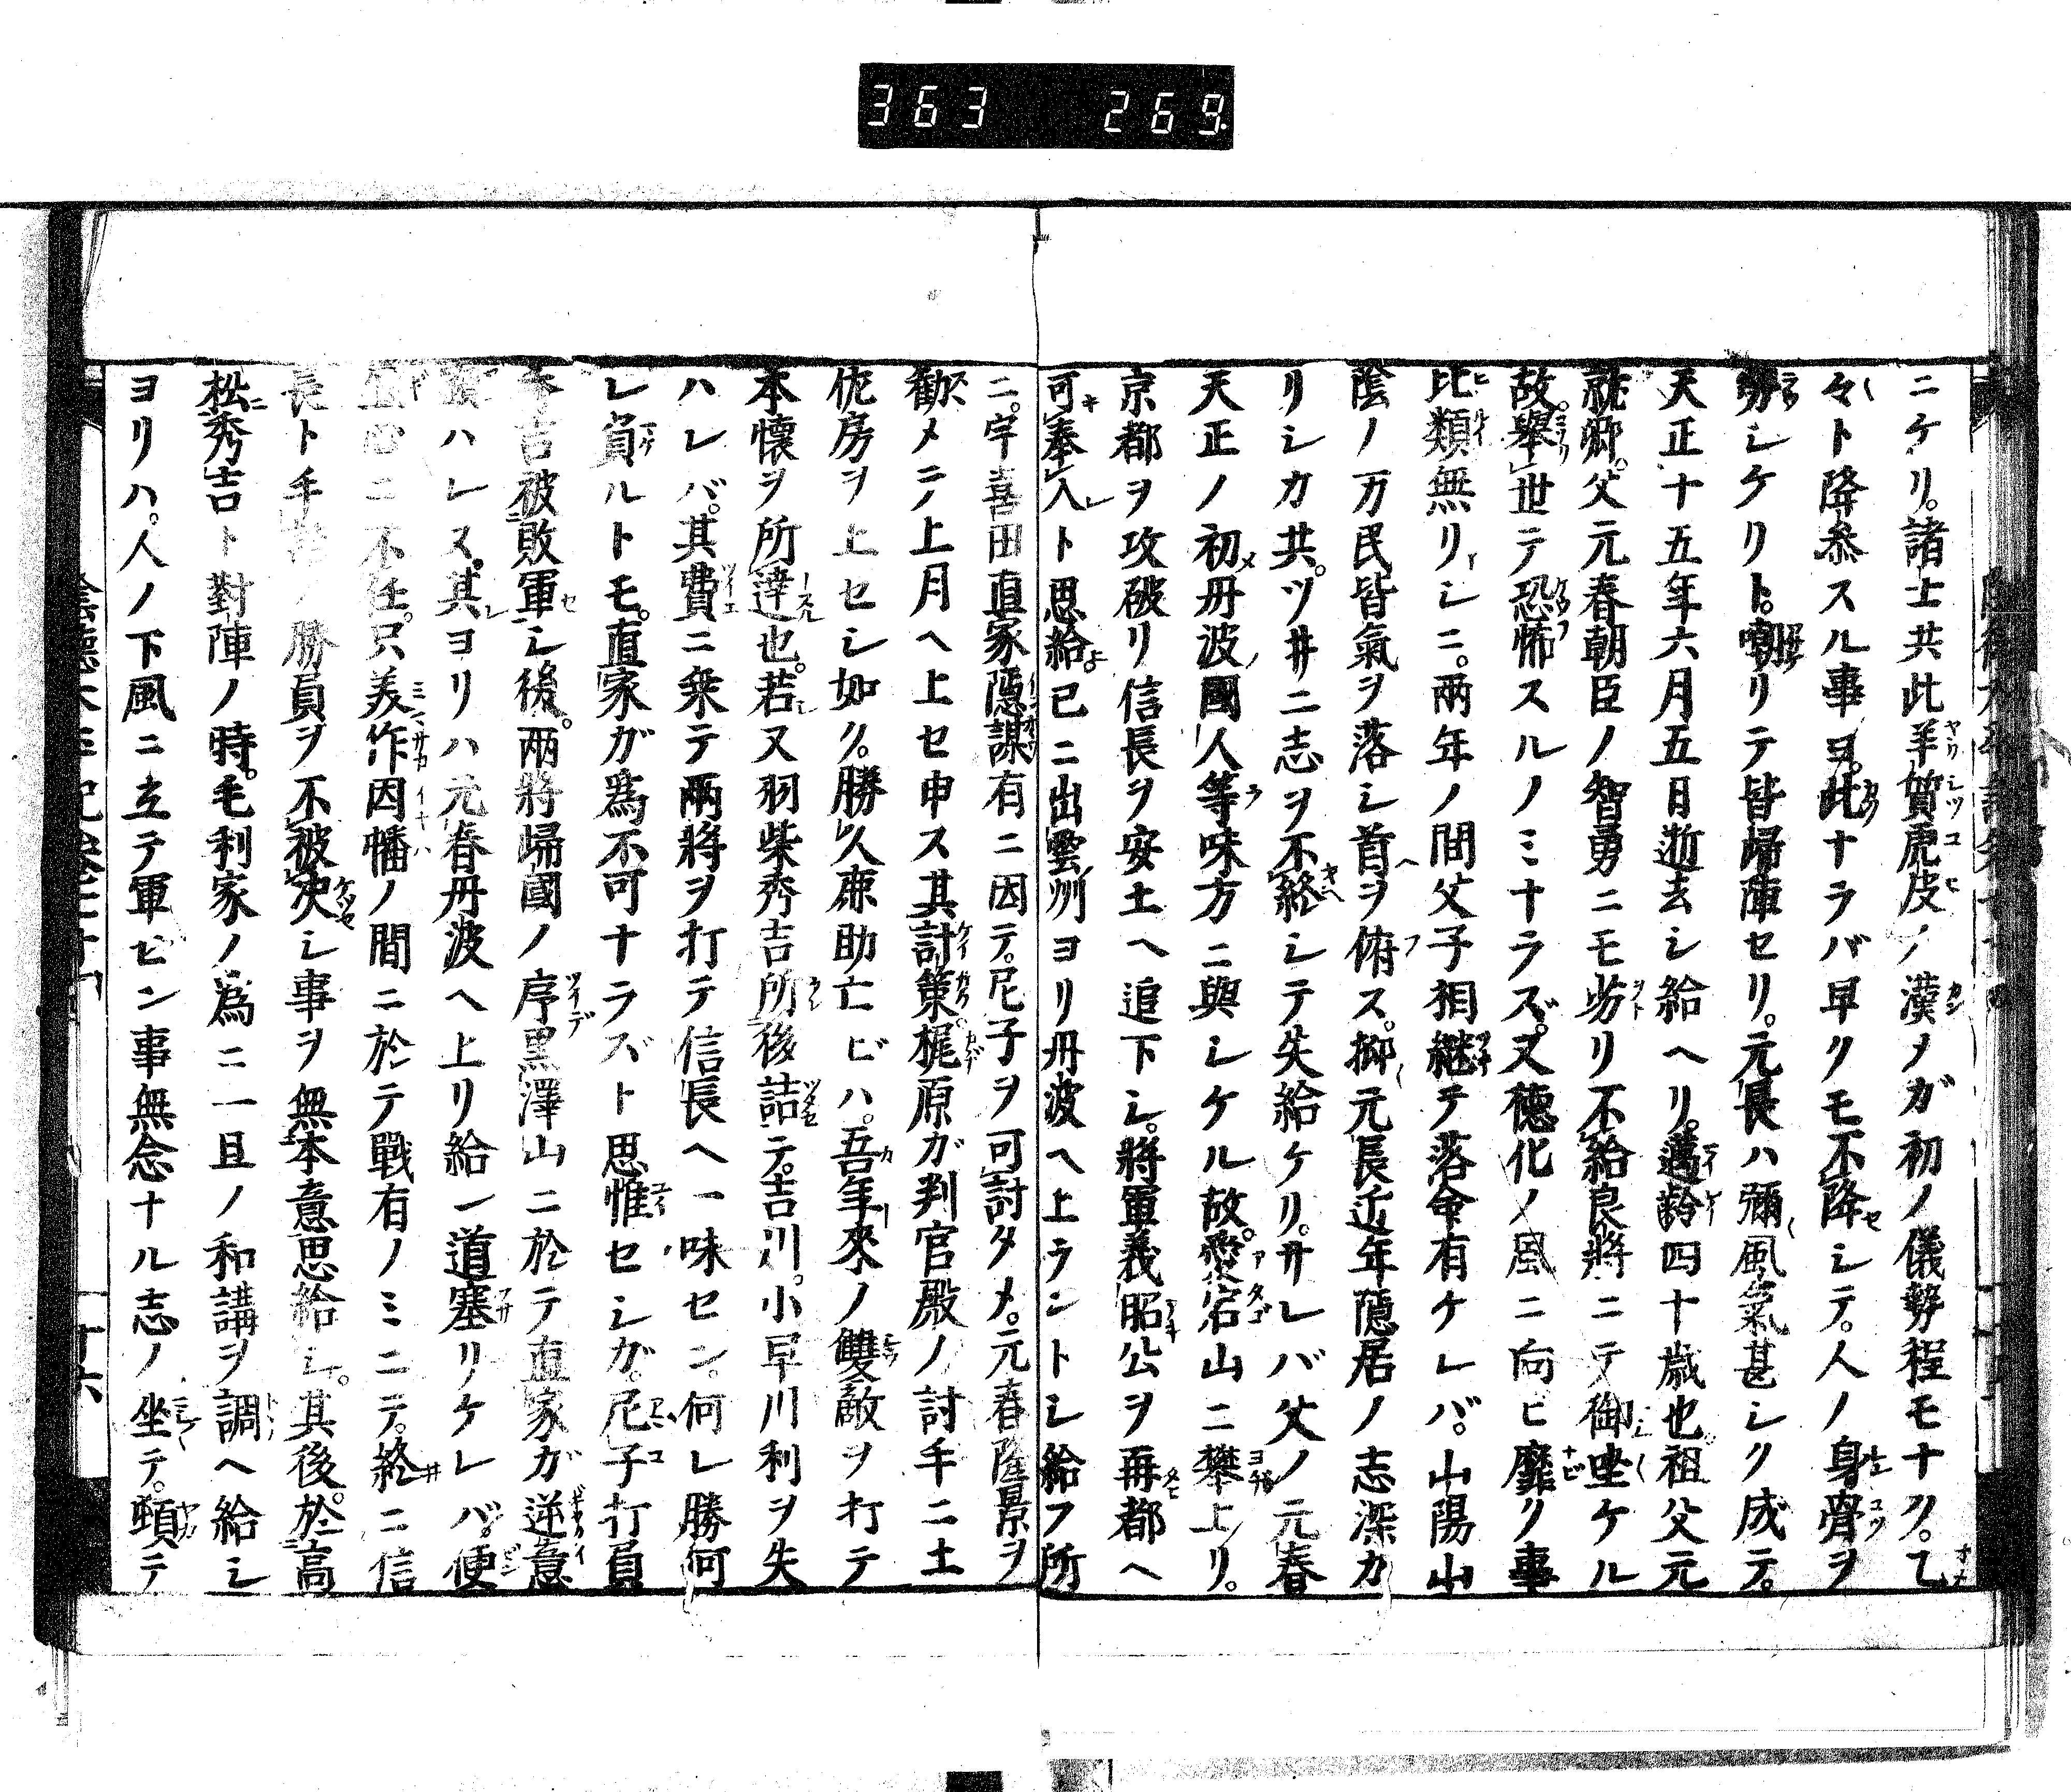 363 269
ニケリ。諸士共此羊質虎皮ノ漢メガ初ノ儀勢程モナク。乙
々ト降参スル事ヨ。此ナラバ早クモ不降シテ。人ノ身膏ヲ
労シケリト。嘲リテ皆帰陣セリ。元長ハ彌風氣甚シク成テ。
天正十五年六月五日逝去シ給ヘリ。邁齢四十歳也。祖父元
就卿。父元春朝臣ノ智勇ニモ劣リ不給良將ニテ御坐ケル
故。擧世テ恐怖スルノミナラズ。又徳化ノ風ニ向ヒ靡ク事
比類無リシニ。兩年ノ間父子相継テ落命有ケレバ。山陽山
陰ノ万民皆氣ヲ落シ首ヲ俯ス。抑元長近年隠居ノ志深カ
リシカ共。ツ井ニ志ヲ不終シテ失給ケリ。サレバ父ノ元春
天正ノ初丹波國人等味方ニ與シケル故。愛宕山ニ攀上リ。
京都ヲ攻破リ信長ヲ安土ヘ追下シ。將軍義昭公ヲ再都ヘ
可奉入ト思給已ニ出雲州ヨリ丹波ヘ上ラントシ給フ所
ニ。宇喜田直家隠謀有ニ因テ。尼子ヲ可討タメ。元春隆景ヲ
勸メテ上月ヘ上セ申ス其計策。梶原ガ判官殿ノ討手ニ土
佐房ヲ上セシ如ク。勝久鹿助亡ビハ。吾年來ノ讐敵ヲ打テ
本懐ヲ所達也。若又羽柴秀吉所後詰テ。吉川。小早川利ヲ失
ハレバ。其費ニ乗テ兩將ヲ打テ信長ヘ一味セン。何レ勝何
レ負ルトモ。直家ガ為不可ナラズト思惟セシガ。尼子打負
秀吉被敗軍シ後。兩將帰國ノ序黒澤山ニ於テ直家ガ逆意
顕ハレヌ。其ヨリハ元春丹波ヘ上リ給一道塞リケレバ。便
心ニ不任。只美作因幡ノ間ニ於テ戰有ノミニテ。終ニ信
長ト手ノ勝負ヲ不被决シ事ヲ無本意思給シ。其後。於高
松秀吉ト對陣ノ時。毛利家ノ為ニ一且ノ和講ヲ調ヘ給シ
ヨリハ。人ノ下風ニ立テ軍ビン事無念ナル志ノ坐テ。頓テ
陰徳太平記巻
十六